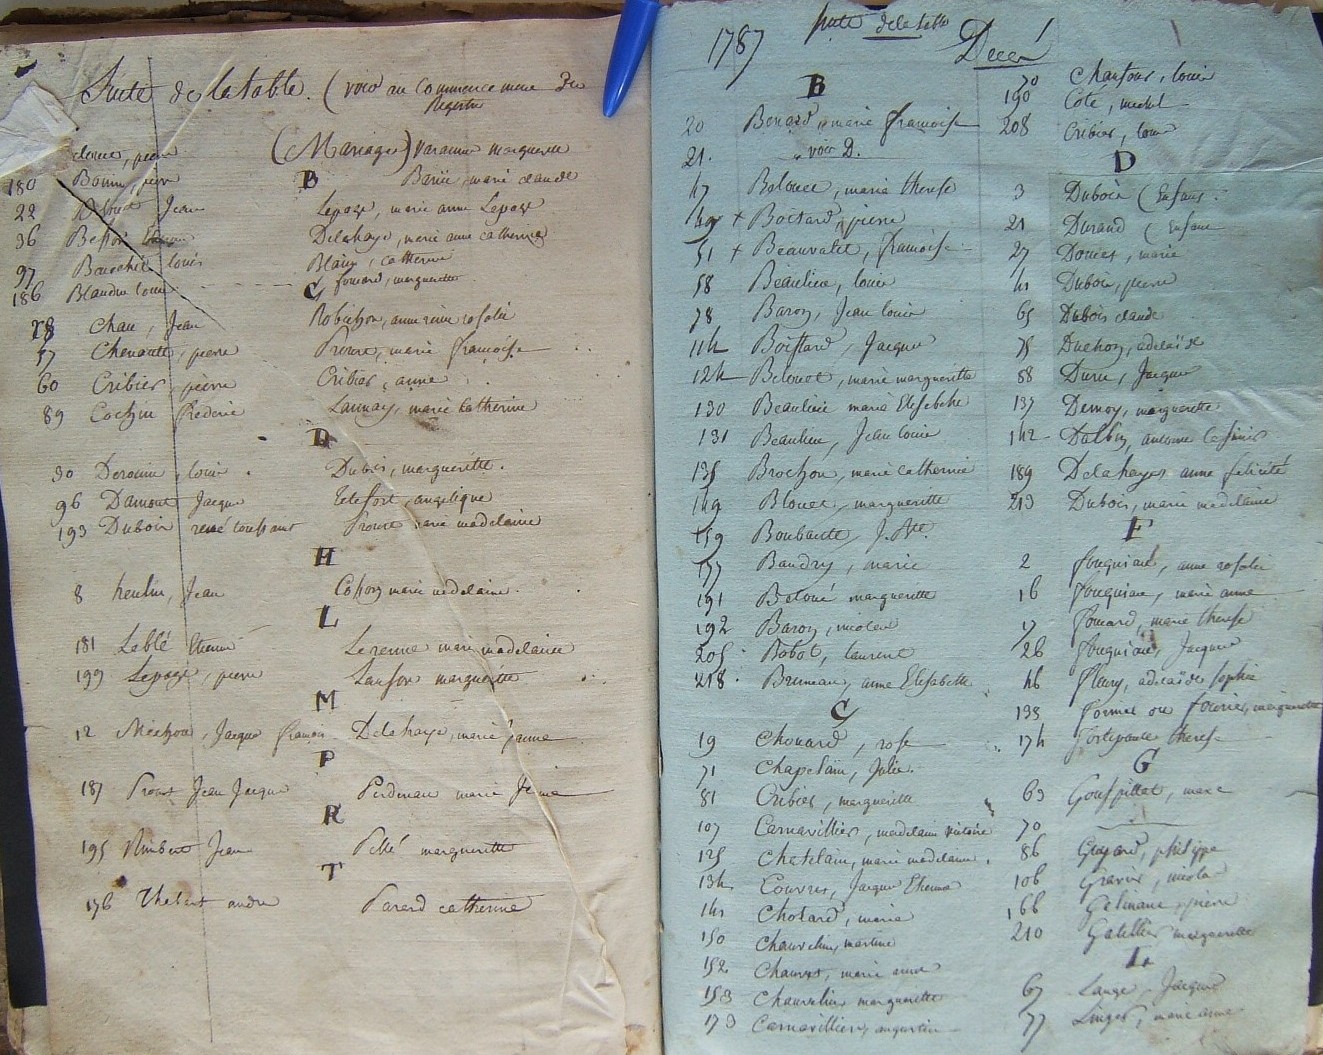 Suite de la table. (voir au commencement du
Registre
(Mariages) marguerite
180 pierre B Barrié, marie claude
22 Jean Lepage, marie anne Lepage
36 Besson Etienne Delahaye, marie anne catherine
97 Bauchet louis Blain, catherine
186 Blandin louis C fouard, marguerite
28 Chau, Jean Robichon, anne reine rosalie
57 Chenault, pierre Prout, marie françoise
60 Cribier, pierre Cribier, anne
89 Cochin frederic Launay, marie Catherine
D
30 Derouin, louis Dubois, marguerite.
96 Damont Jacque Telefort, angelique
193 Dubois rené toussaint Prout marie madelaine
H
8 heulin, Jean Cohon marie madelaine.
L
181 Leblé Etienne Lerenne marie madelaine
199 Lepage, pierre Lanson marguerite
M
12 Mechon, Jacque françois Delahaye, marie Jeanne
P
187 Prout Jean Jacque marie Jeanne
R
195 Rimbert Jean Pellé marguerite
T
176 andré Parard catherine
1787 suite de la table Decés
B
20 Benard, marie françoise
21. voir D.
47 Belouet, marie therese
49 + Boitard, pierre
51 + Beauvalet, françoise
58 Beaulieu, louis
78 Baron, Jean louis
114 Boistard, Jacque
124 Belouet, marie marguerite
130 Beaulieu marie Elisabeth
131 Beaulieu, Jean louis
135 Brochon, marie catherine
149 Blouet, marguerite
159 Boubault, J. Bte.
177 Baudry, marie
191 Beloué marguerite
192 Baron, nicolas
205 Bobot, laurent
218. Bruneau, anne Elisabeth
C
19 Chouard, rose
71 Chapelain, Julie.
81 Cribier, marguerite
107 Carnavillier, madelaine victoire
125 Chatelain, marie madelaine.
134 Couvret, Jacque Etienne
141 Chotard, marie
150 Chauvelin, martine
152 Chauvet, marie anne
153 Chauvelin, marguerite
173 Carnavillier, augustin
70 Chantour, louis
190 Coté, michel
208 Cribier, louis
D
3 Dubois (Enfans.
21 Durand (Enfant
27 Doucet, marie
41 Dubois, pierre
65 Dubois claude
75 Duchon, adelaïde
88 Duru, Jacque
137 Demoy, marguerite
142 antoine Casimir
189 Delahaye anne felicité
213 Dubois, marie madelaine
F
2 fouquiau, anne rosalie
16 fouquiau, marie anne
17 fouard, marie therese
26 fouquiau, Jacque
46 fleury, adelaïde sophie
138 formier ou fourier, marguerite
174 therese
G
63 Goupillet, marc
70
86 Guyard, philippe
106 Gravet, nicolas
166 Gelineau, pierre
210 Galillier marguerite
L
67 Lange, Jacque
77 Linger, marie anne